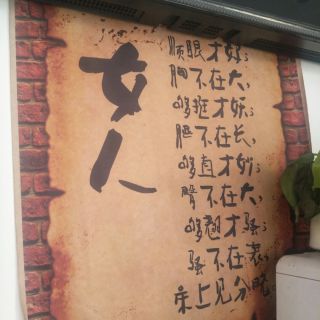 女人
顺眼才好；
胸不在大，
够挺才妖；
腿不在长，
够直才妙；
臀不在大，
够翘才骚；
骚不在装，
床上见分晓。